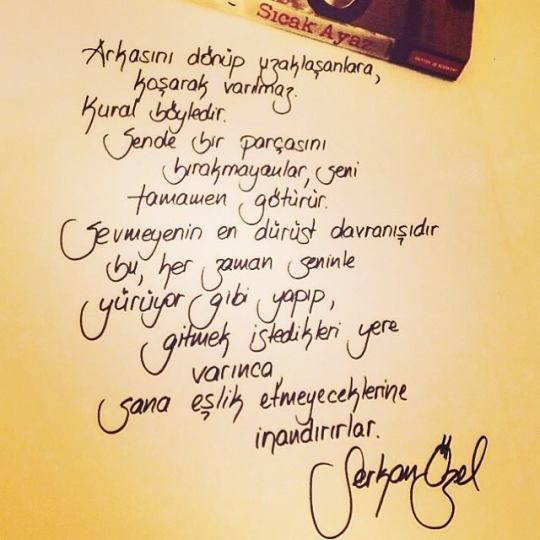 Sıcak Ayaz
Arkasını dönüp uzaklaşanlara,
koşarak varılmaz.
Kural böyledir.
Sende bir parçasını
bırakmayanlar, seni
tamamen götürür.
Sevmeyenin en dürüst davranışıdır
bu, her zaman seninle
yürüyor gibi yapıp,
gitmek istedikleri yere
varınca,
sana eşlik etmeyeceklerine
inandırırlar.
Serkan Özel